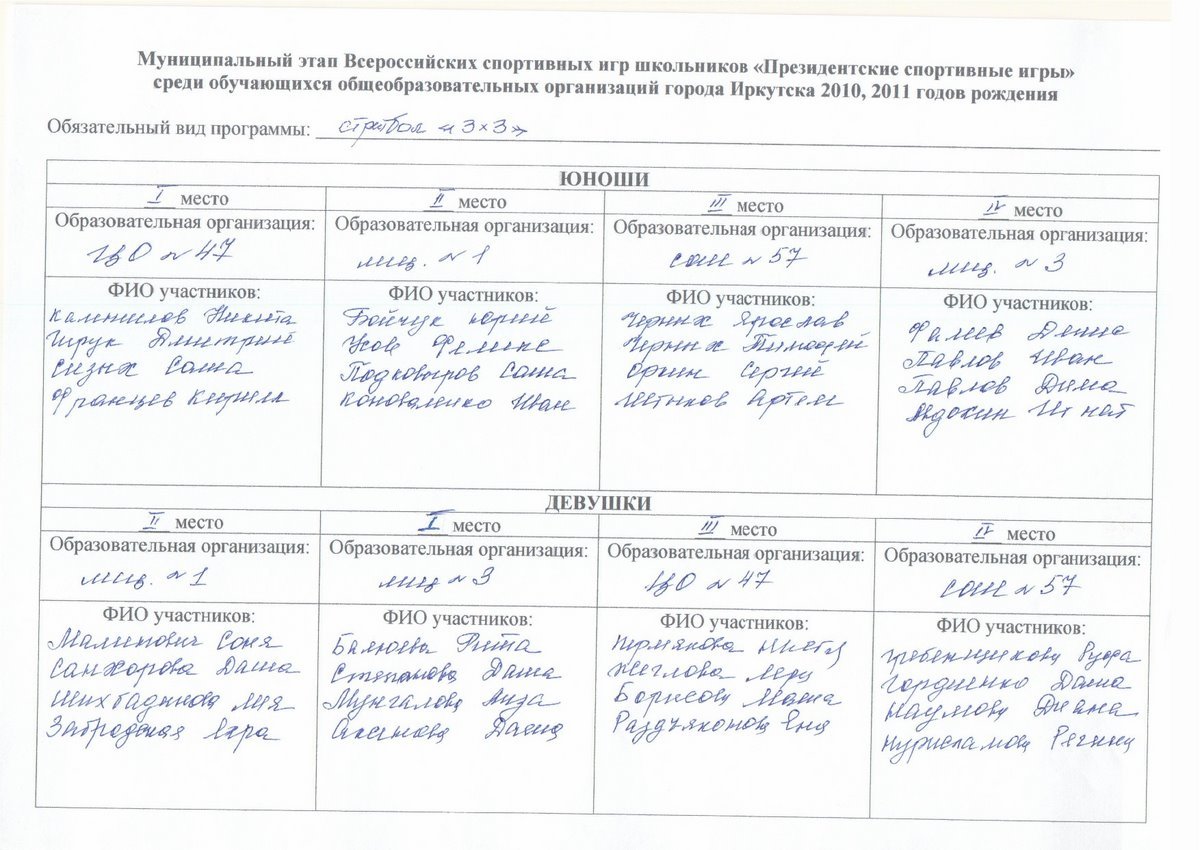 Муниципальный этап Всероссийских спортивных игр школьников «Президентские спортивные игры»
среди обучающихся общеобразовательных организаций города Иркутска 2010, 2011 годов рождения
Обязательный вид программы: стритбол «3×3»
ЮНОШИ
I место
II место
III место
IV место
Образовательная организация:
Образовательная организация:
Образовательная организация:
Образовательная организация:
ЦО №47
лиц. №1
сош №57
лиц. №3
ФИО участников:
Никита
Дмитрий
Сизых Саша
Францев Кирилл
ФИО участников:
Бойчук Юрий
Усов Феликс
Подковыров Саша
Коноваленко Иван
ФИО участников:
Черных Ярослав
Черных Тимофей
Сергей
Штыков Артем
ФИО участников:
Павлов Иван
Павлов Дима
Игнат
ДЕВУШКИ
II место
I место
III место
IV место
Образовательная организация:
Образовательная организация:
Образовательная организация:
Образовательная организация:
лиц. №1
лиц №3
ЦО №47
сош №57
ФИО участников:
Малинович Соня
Санжорова Даша
Шихбадинова
Загородская
ФИО участников:
Рита
Степанова Даша
Мунгалова Лиза
Аксенова Даша
ФИО участников:
Пермякова
Жеглова
Борисова Маша
Раздьяконова Яна
ФИО участников:
Гребенщикова
Гордиенко Даша
Наумова Диана
Нурисламова Регина